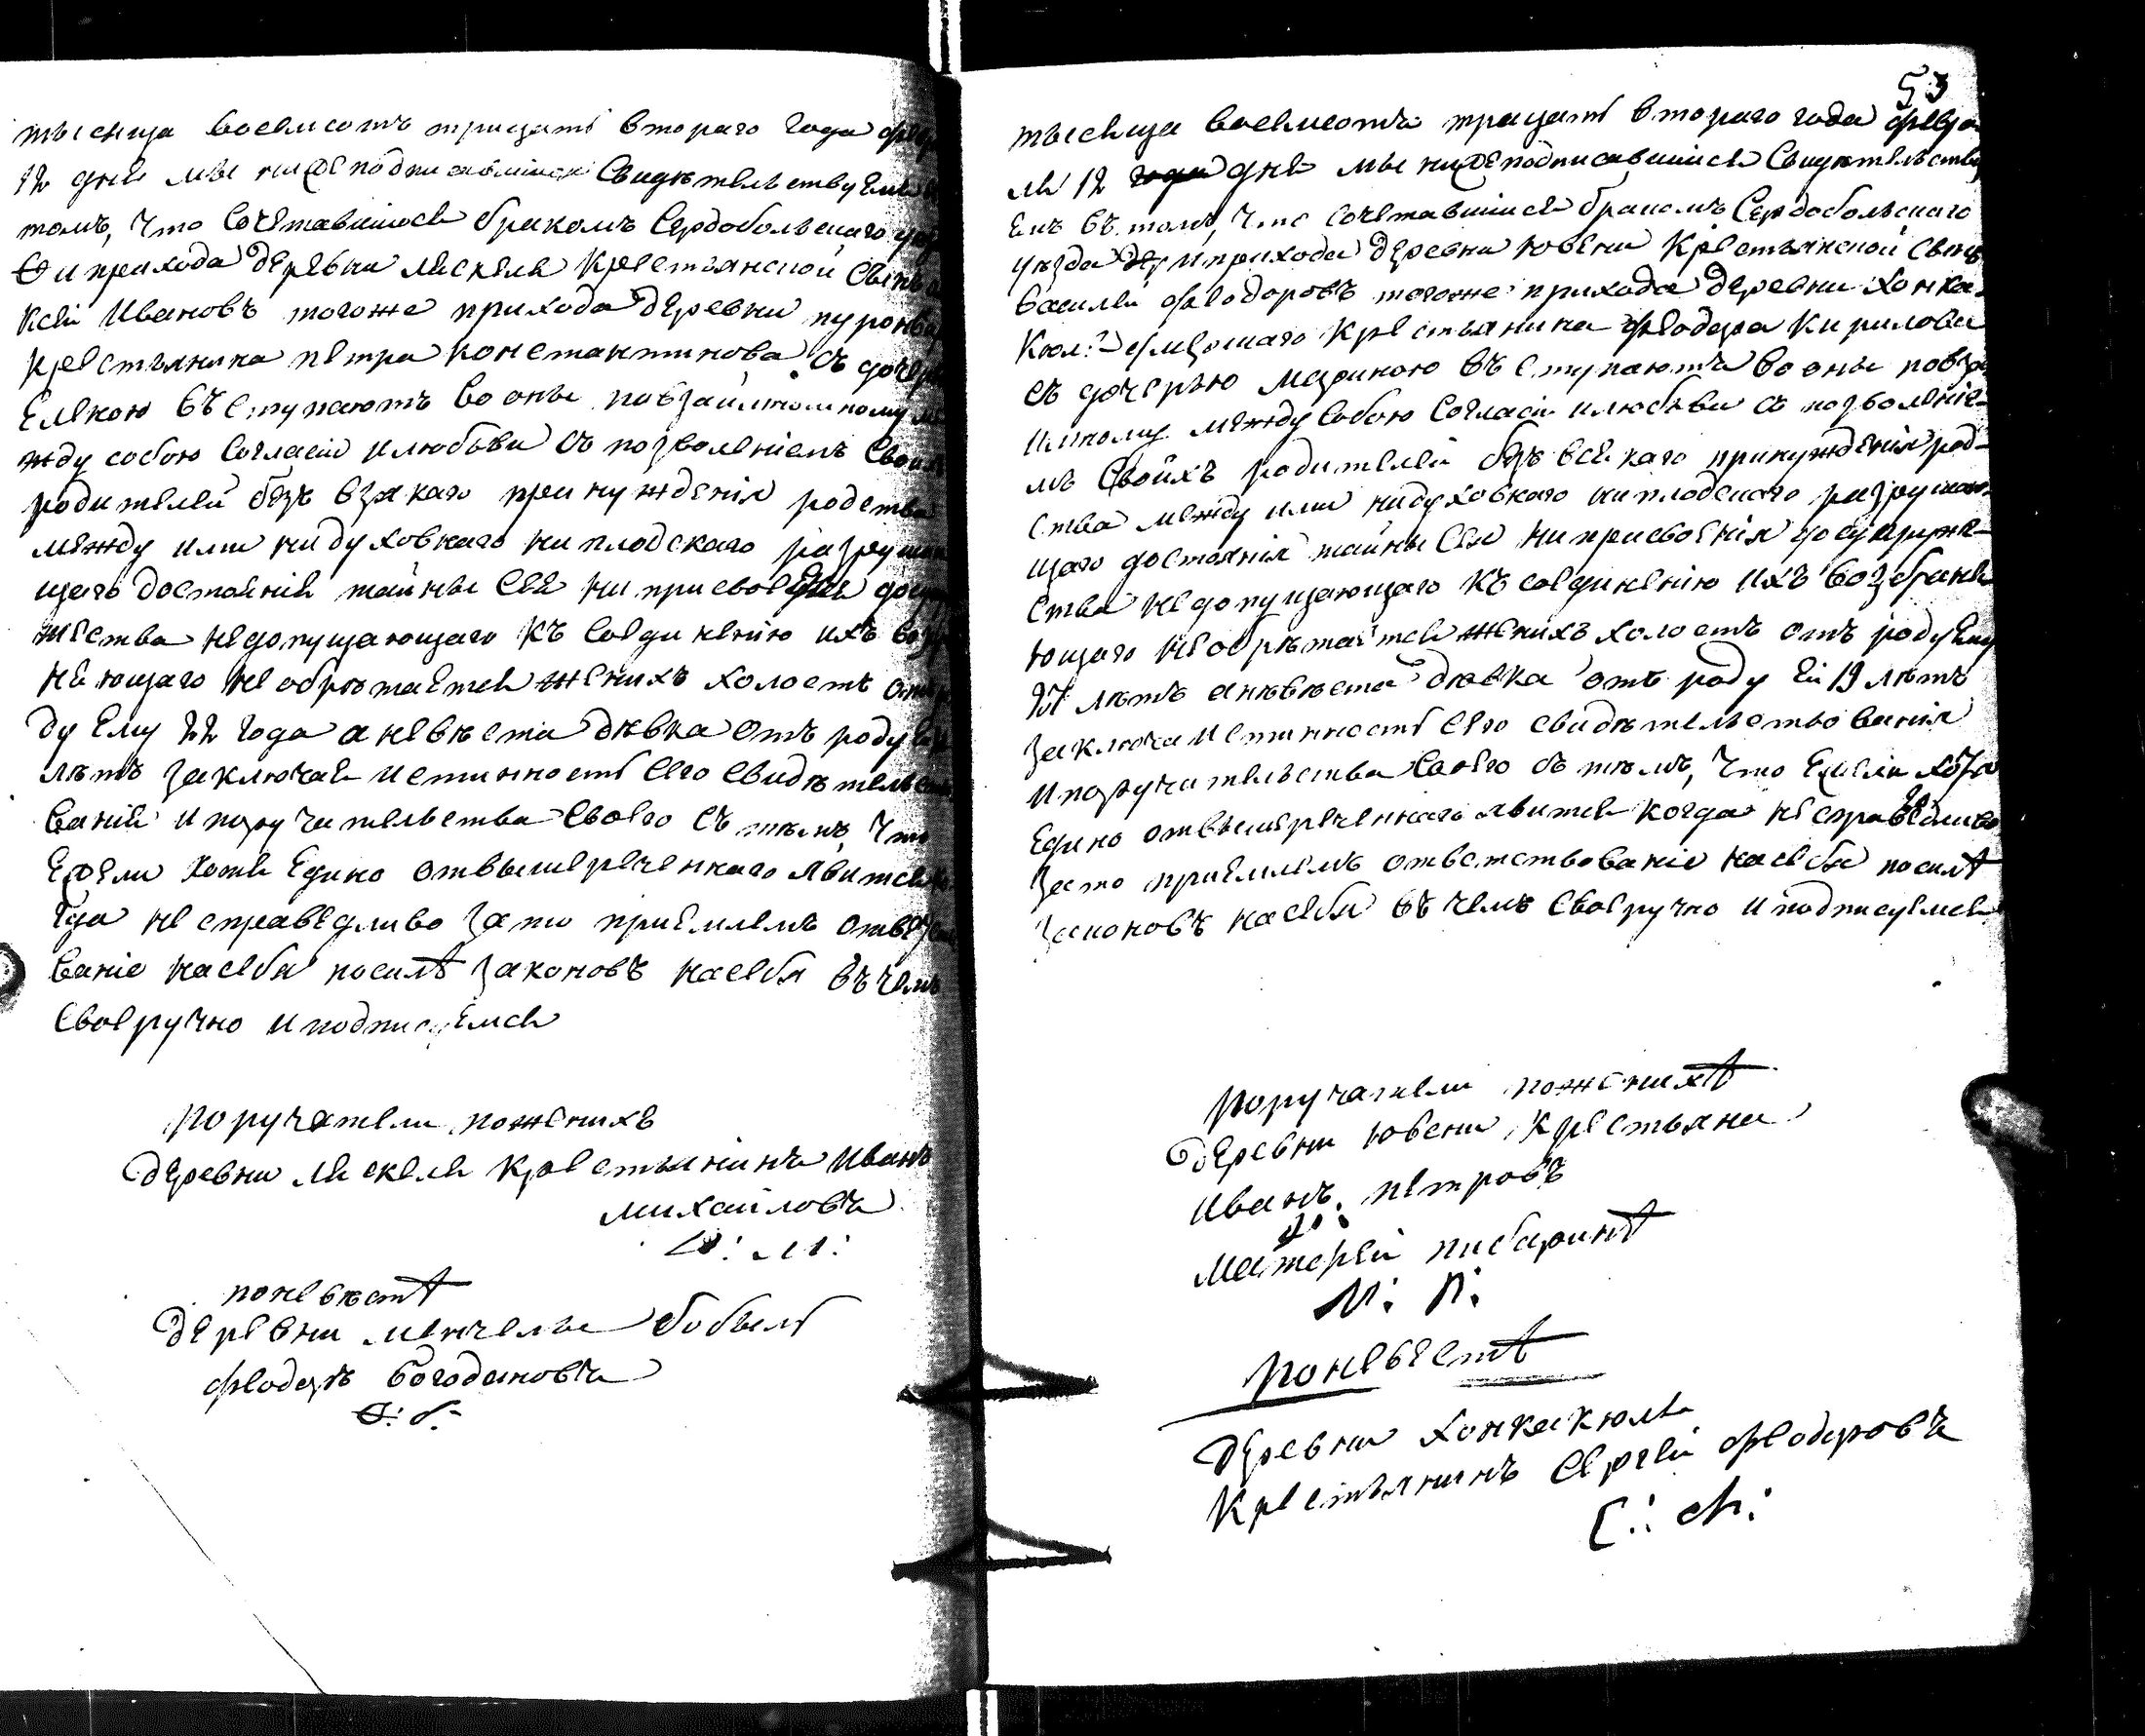 тысеща восемсотъ тридцать втораго года
12 дня мы нижеподписавшіися свидетельствуемъ
томъ, что сочетавшіися бракомъ Сердобольскаго
и прихода деревни Лескеля крестьянской сынъ
ксей Ивановъ тогоже прихода деревни
крестьянина петра константинова съ дочерью
Еленою въ ступаютъ во оны повзаимному ме
жду собою согласію и любови съ позволеніемъ своихъ
родителей безъ взякаго принужденія родства
между ими ни духовнаго ни плодскаго разрушаю
щаго достоянія тайны сея ни присвоенія
жества недопущающаго къ соединенію ихъ
няющаго не обретается женихъ холостъ отъ
ду Ему 22 года а невѣста дѣвка отъ роду
летъ заключая истинность сего свидетельство
ванія и поручительства своего съ темъ, что
Ежели хотя Едино отвышереченнаго явится
гда не справедливо за то приемлемъ
ваніе на себя посилѣ законовъ на себя въ чемъ
своеручно и подписуемся
поручатели пожених
деревни Лескеля крестьянинъ Иванъ
михайловъ
И: М:
поневестѣ
деревни бобыль
феодоръ богдановъ
Ѳ: б:
53
тысеща восемсотъ тридцать втораго года февра
ля 12 дня мы нижеподписавшіися свидетельству
емъ въ томъ, что сочетавшіися бракомъ Сердобольскаго
уезда и прихода деревни ювени крестьянской сынъ
василей феодоровъ тогоже прихода деревни хонка
кюля умершаго крестьянина феодора кирилова
съ дочерью мариною въ ступаютъ во оны повза
имному между собою согласію и любови съ позволеніе
мъ своихъ родителей безъ всякаго принужденія род
ства между ими нидуховнаго ни плодскаго разрушаю
щаго достоянія тайны сея ни присвоенія до супруже
ства недопущающаго къ соединенію ихъ возбраня
ющаго не обретается женихъ холостъ отъ роду Ему
летъ а невѣста дѣвка отъ роду Ей 19 летъ
заключа истинность сего свидетельствованія
и поручительства своего въ темъ, что Ежели хотя
Едино отвышереченнаго явится когда не справедливо
зато приемлемъ ответствованіе на себя посилѣ
законовъ на себя въ чемъ своеручно и подписуемся
поручатели поженихѣ
деревни ювени крестьяни
иванъ петровъ
И:
матфей пибаринѣ
М: П:
поневестѣ
деревни хонкакюля
крестьянинъ сергей феодоровъ
С: Ф: